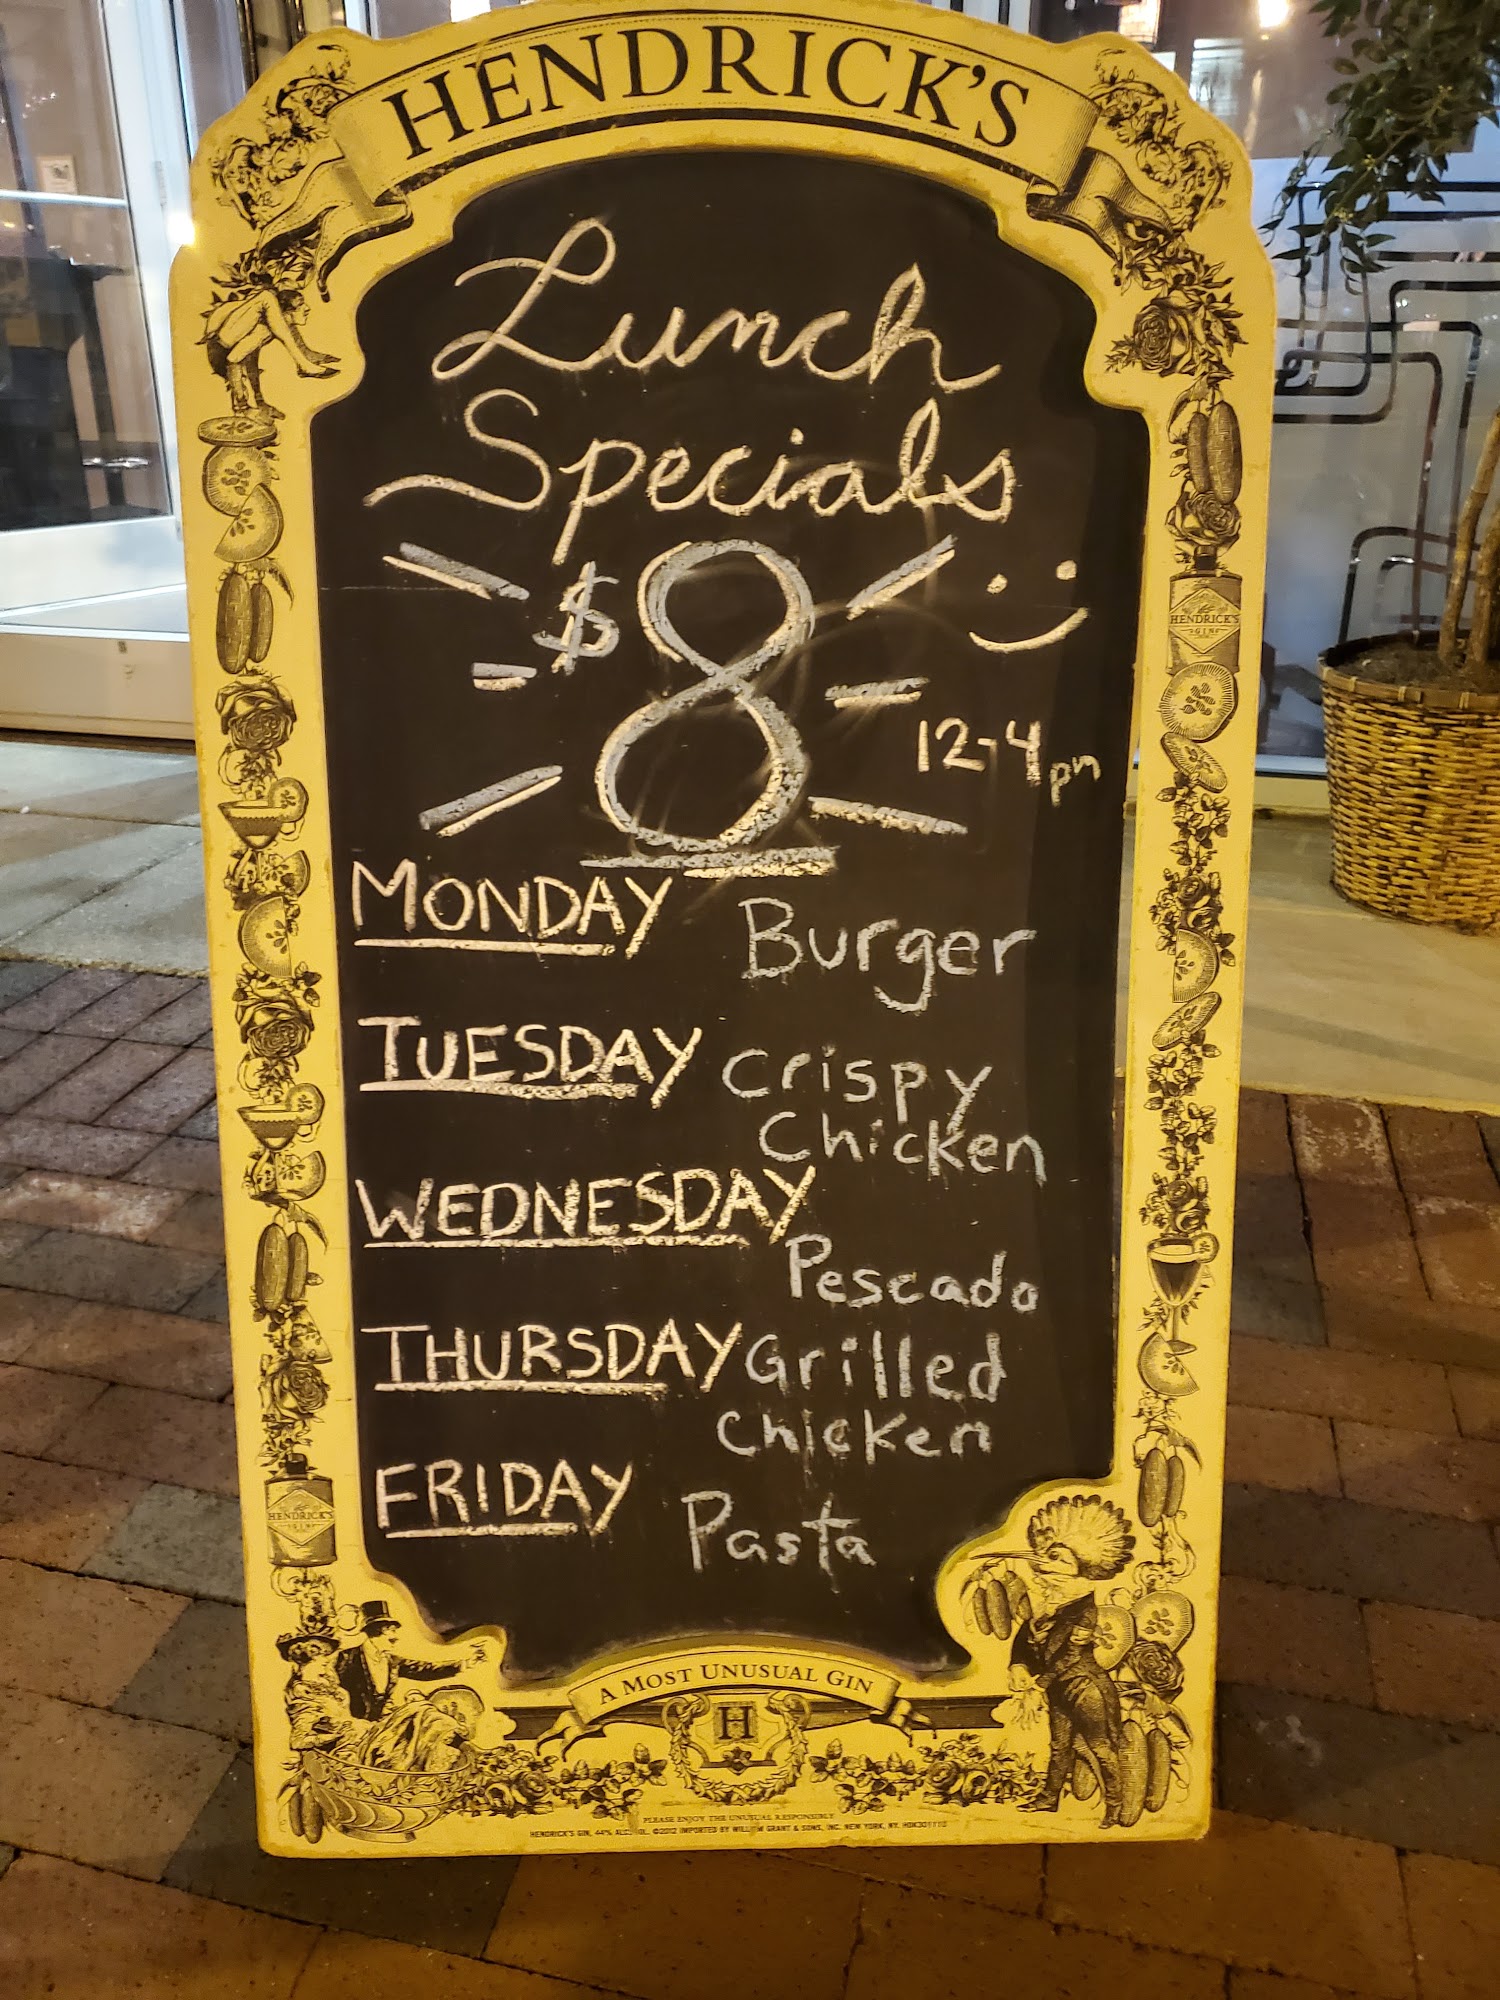 HENDRICK'S
Lunch
Specials
$8
12-4pm
MONDAY Burger
TUESDAY Crispy
Chicken
WEDNESDAY
Pescado
THURSDAY Grilled
Chicken
FRIDAY
Pasta
HENDRICK'S
GIN
HENDRICK'S
GIN
A MOST UNUSUAL GIN
H
PLEASE ENJOY THE UNUSUAL RESPONSIBLY
HENDRICK'S GIN, 44% ALC./VOL. ©2012 IMPORTED BY WILLIAM GRANT & SONS, INC. NEW YORK, NY.